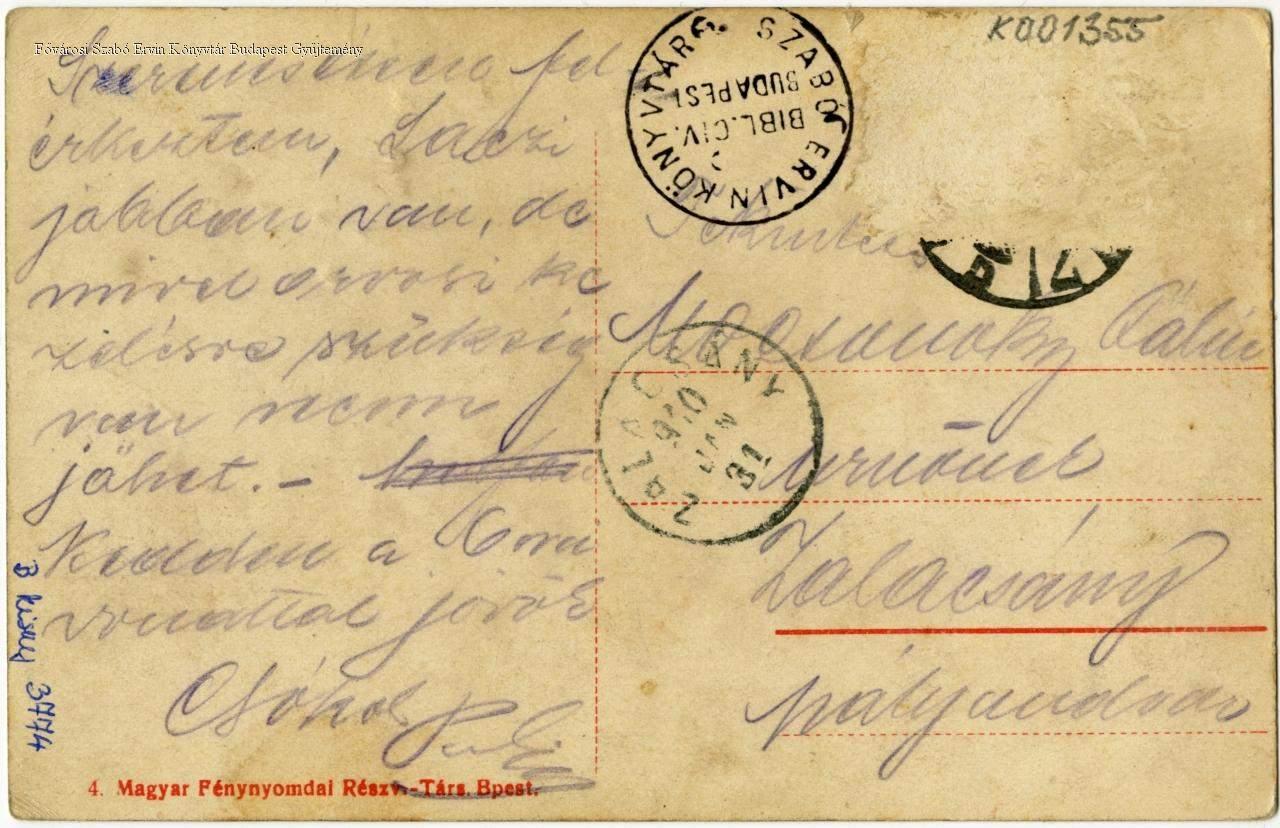 Fővárosi Szabó Ervin Könyvtár Budapest Gyűjtemény
K001355
SZABÓ ERVIN KÖNYVTÁR
BUDAPEST
BIBL. CIV.
Szerencsésen fel
érkeztem, Laczi
jobban van, de
mivel orvosi ke
zelésre szükség
van nem
jöhet. –
Kedden a 6 órai
vonattal jövök
Csókol
Tekintetes
Pálné
urnőnek
Zalacsány
pályaudvar
ZALACSÁNY
910
JAN
31
B kisny 3774
4. Magyar Fénynyomdai Részv.-Társ. Bpest.